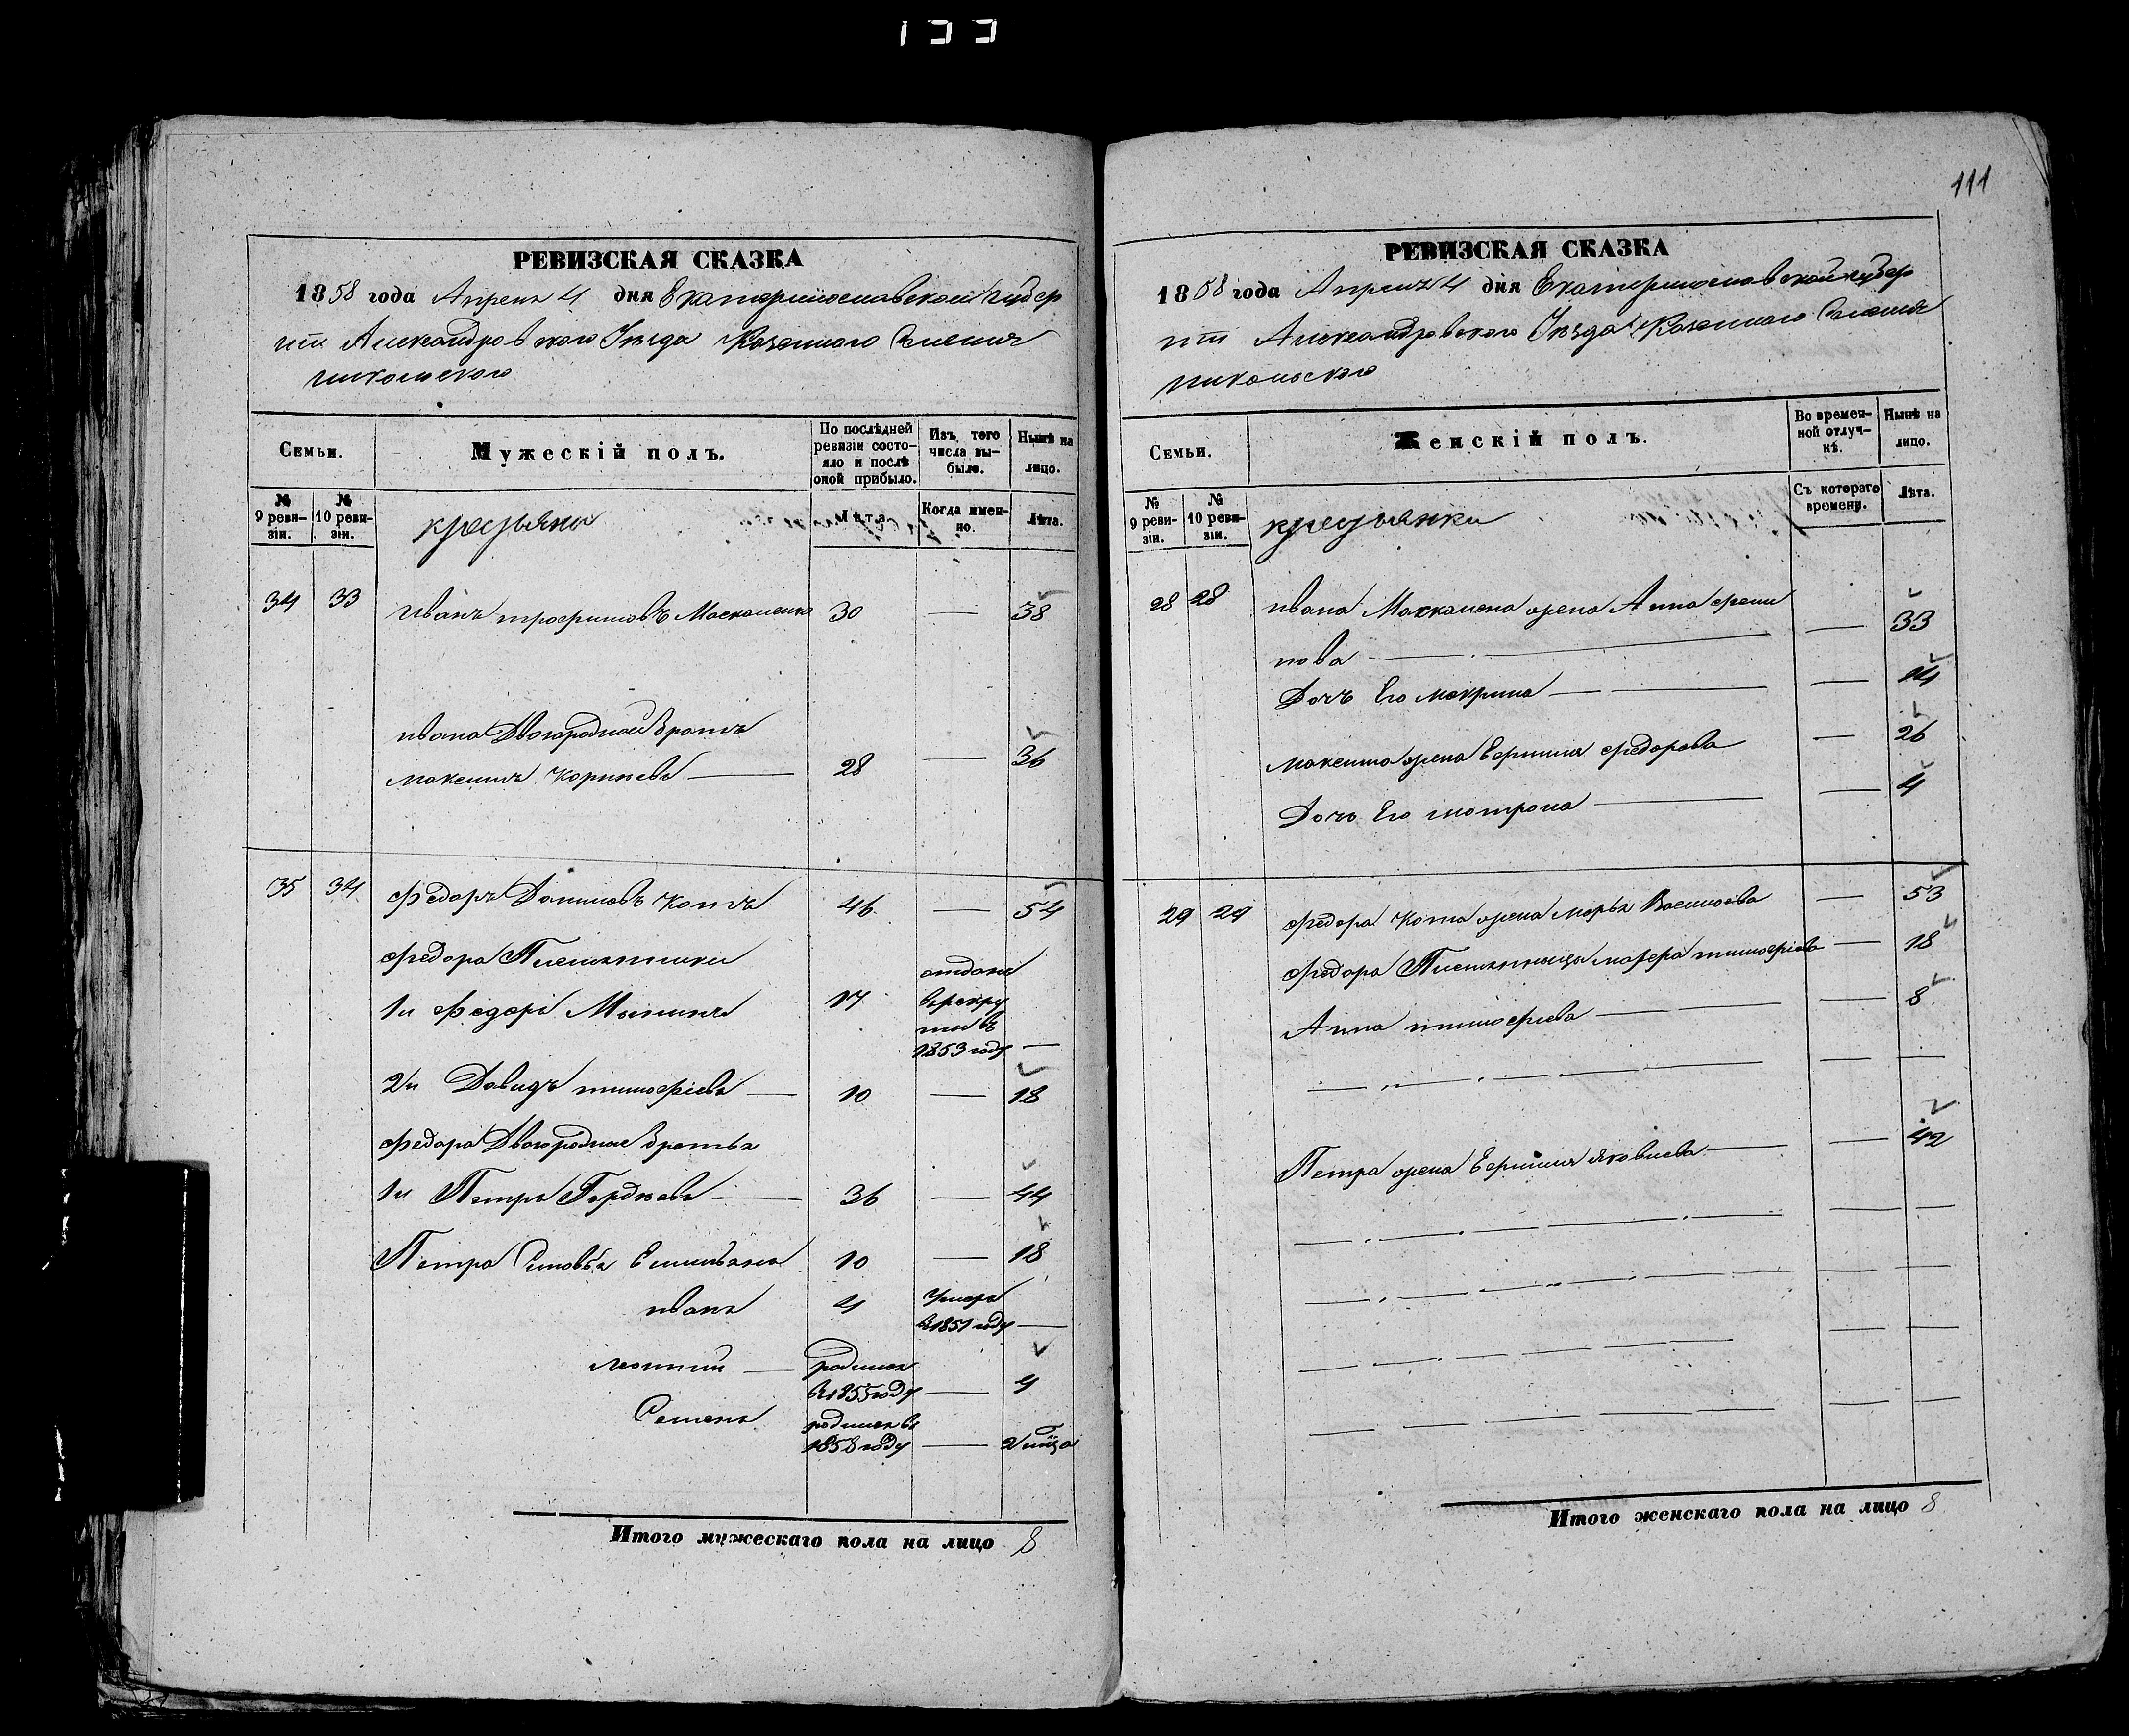 133
РЕВИЗСКАЯ СКАЗКА
1858 года Апреля 4 дня Екатеринославской Губер
ніи Александровского Уезда Казенного Селения
Никольского
Семьи.
Мужескій полъ.
По послѣдней ревизіи состояло и послѣ оной прибыло.
Изъ того числа выбыло.
Нынѣ на лицо.
№ 9 ревизіи.
№ 10 ревизіи.
крестьяне
Лѣта.
Когда именно.
Лѣта.
34 33 Иванъ трофимовъ Москаленко 30 — 38
ивана Двоюродной Братъ
максимъ Корнѣевъ — 28 — 36
35 34 Федоръ Даниловъ Котъ 46 — 54
Федора Племянники
1й Федоръ 17 отданъ
в рекру
ты въ
1853 году —
2й Давидъ тимофіевъ — 10 — 18
Федора Двоюродные братья
1й Петръ Гордѣевъ — 36 — 44
Петра Сыновья Емельянъ 10 — 18
иванъ 4 Умеръ
в 1851 году —
— родился
в 1855 году — 4
Семенъ родился въ
1858 году — 2 мѣсца
Итого мужескаго пола на лицо 8
111
РЕВИЗСКАЯ СКАЗКА
1858 года Апреля 4 дня Екатеринославской Губер
ніи Александровского Уезда Казенного Селения
Никольского
Семьи.
Женскій полъ.
Во временной отлучкѣ.
Нынѣ на лицо.
№ 9 ревизіи.
№ 10 ревизіи.
крестьянки
Съ котораго времени.
Лѣта.
28 28 ивана Москалена жена Анна
нова — — 33
Дочь Его макрина — — — 14
максима жена Евфимия федорова — 26
Дочь Его мотрона — — 4
29 29 Федора Кота жена марья Василиева — 53
Федора Племянница марфа тимофіева — 18
Анна тимофиева — — — 8
Петра жена Евфимия яковлева — — 42
Итого женскаго пола на лицо 8